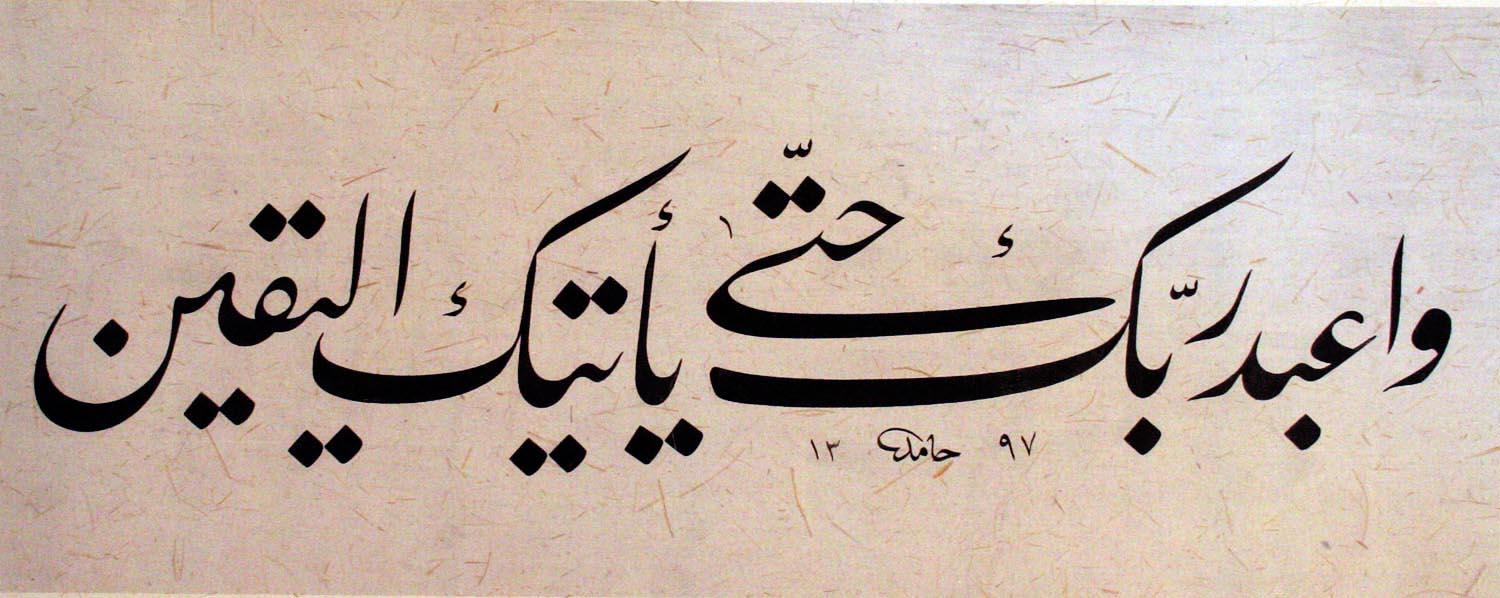 واعبد ربّك حتّى يأتيك اليقين
١٣ حامد ٩٧